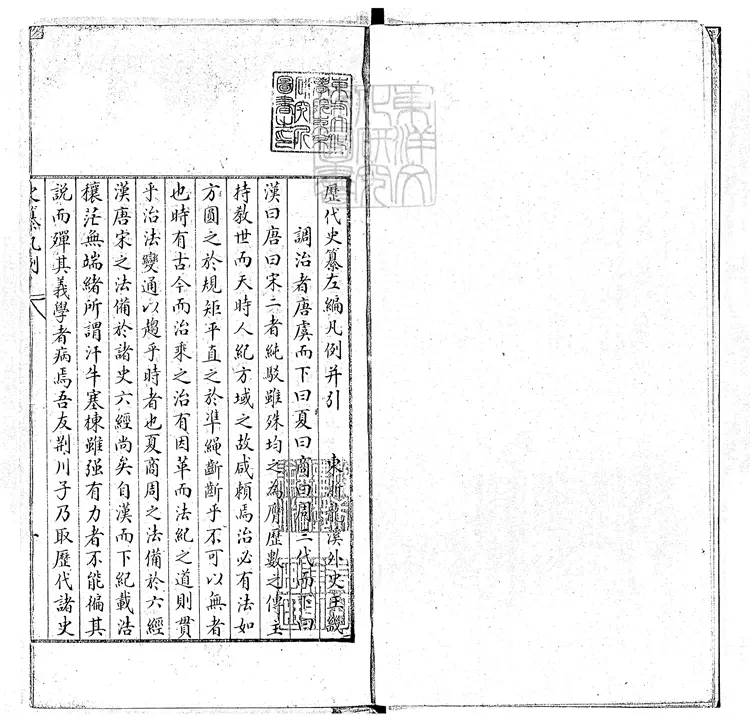 東方文化
學院東京
研究所
圖書之印
東洋文
化研究
所圖書
歷代史纂左編凡例并引　東浙龍溪外史王畿
調治者唐虞而下曰夏曰商曰周三代而下曰
漢曰唐曰宋二者純駁雖殊均之為膺歷數之傳主
持教世而天時人紀方域之故咸賴焉治必有法如
方圓之於規矩平直之於準繩斷斷乎不可以無者
也時有古今而治乘之治有因革而法紀之道則貫
乎治法變通以趨乎時者也夏商周之法備於六經
漢唐宋之法備於諸史六經尚矣自漢而下紀載浩
穰茫無端緒所謂汗牛塞棟雖强有力者不能徧其
說而殫其義學者病焉吾友荊川子乃取歷代諸史
史纂凡例